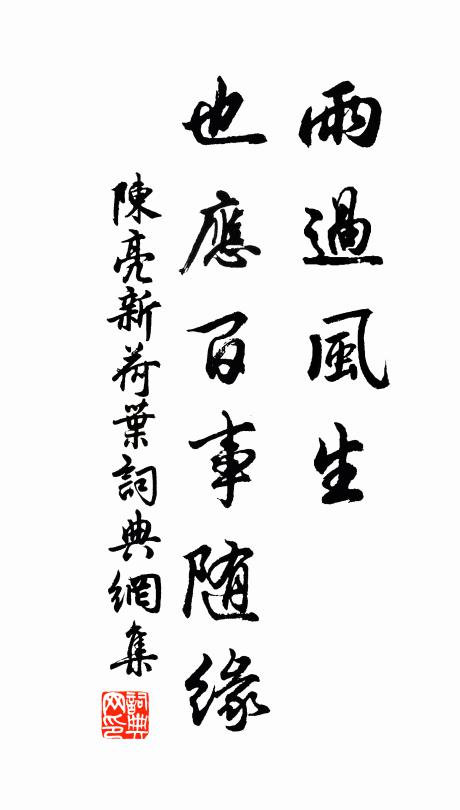 雨過風生
也應百事随緣
陳亮新荷葉詞典網集
詞典網印